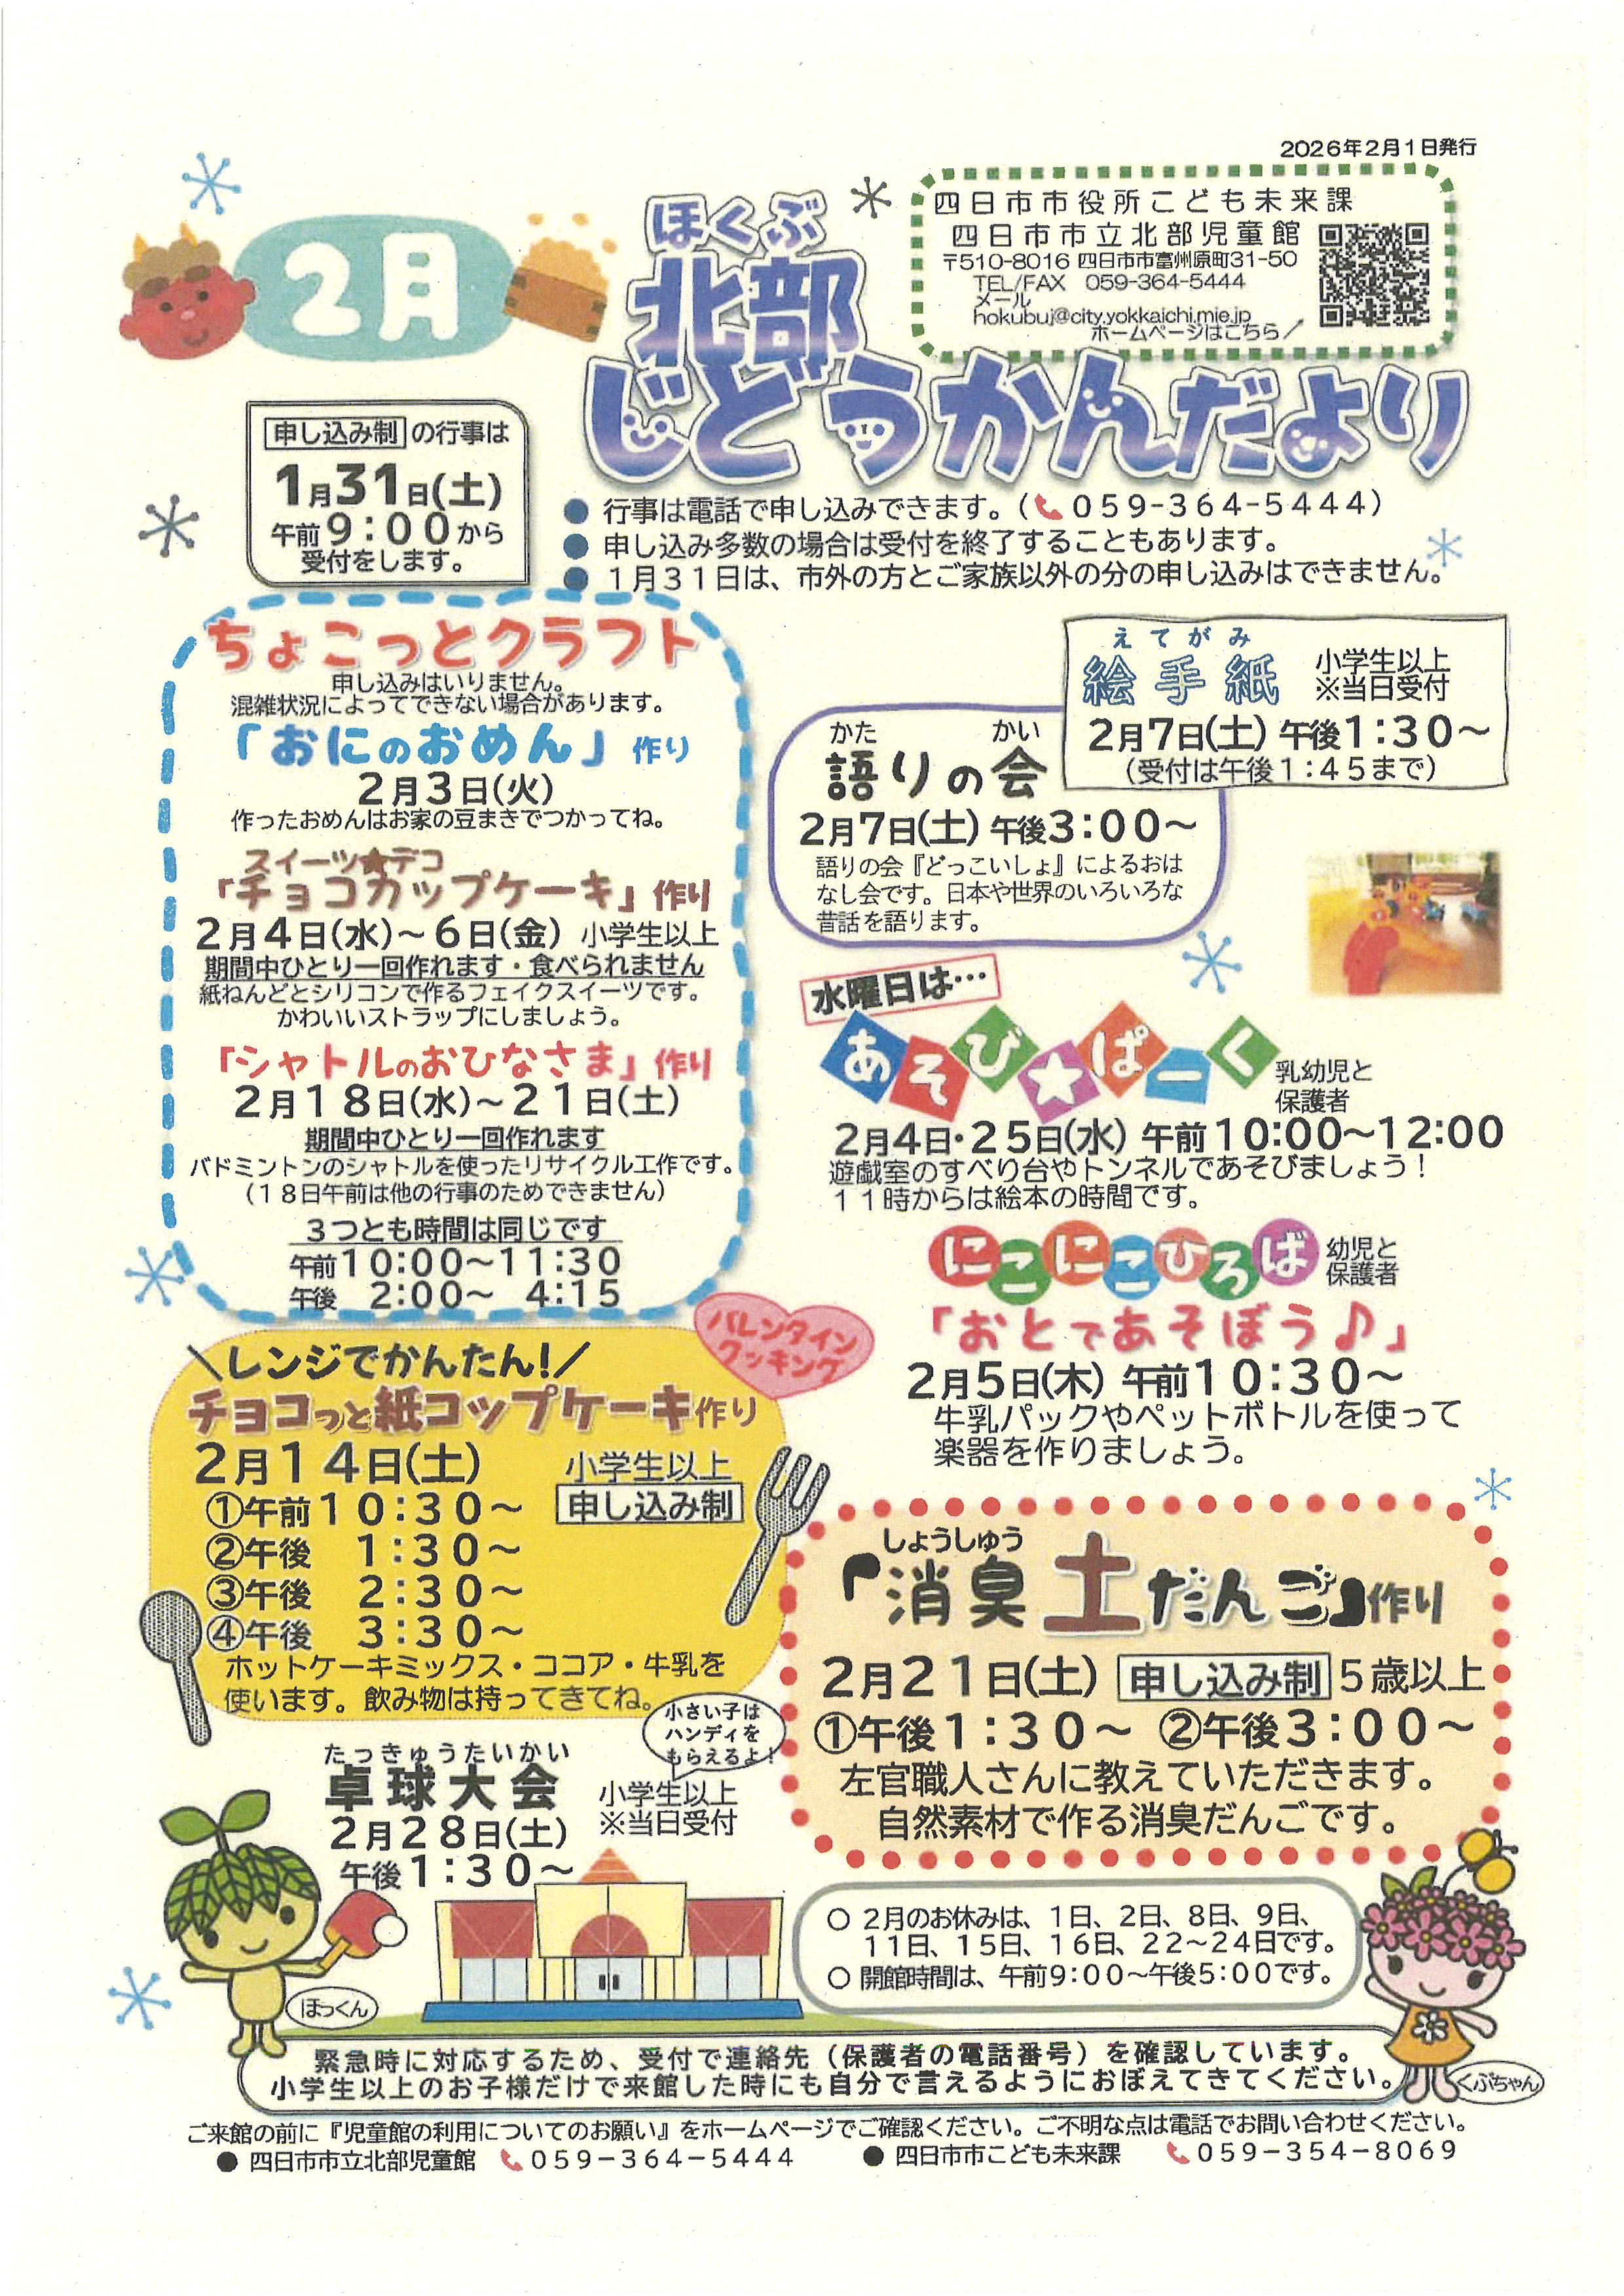 2026年2月1日発行
2月
ほくぶ
北部
じどうかんだより
四日市市役所こども未来課
四日市市立北部児童館
〒510-8016 四日市市富州原町31-50
TEL/FAX 059-364-5444
メール
hokubuj@city.yokkaichi.mie.jp
ホームページはこちら/
申し込み制の行事は
1月31日(土)
午前9:00から
受付をします。
● 行事は電話で申し込みできます。(059-364-5444)
● 申し込み多数の場合は受付を終了することもあります。
● 1月31日は、市外の方とご家族以外の分の申し込みはできません。
ちょこっとクラフト
申し込みはいりません。
混雑状況によってできない場合があります。
「おにのおめん」作り
2月3日(火)
作ったおめんはお家の豆まきでつかってね。
スイーツ★デコ
「チョコカップケーキ」作り
2月4日(水)~6日(金) 小学生以上
期間中ひとり一回作れます・食べられません
紙ねんどとシリコンで作るフェイクスイーツです。
かわいいストラップにしましょう。
「シャトルのおひなさま」作り
2月18日(水)~21日(土)
期間中ひとり一回作れます
バドミントンのシャトルを使ったリサイクル工作です。
(18日午前は他の行事のためできません)
3つとも時間は同じです
午前10:00~11:30
午後 2:00~ 4:15
えてがみ
絵手紙
小学生以上
※当日受付
2月7日(土) 午後1:30~
(受付は午後1:45まで)
かた かい
語りの会
2月7日(土) 午後3:00~
語りの会『どっこいしょ』によるおは
なし会です。日本や世界のいろいろな
昔話を語ります。
水曜日は…
あそび★ぱーく
乳幼児と
保護者
2月4日・25日(水) 午前10:00~12:00
遊戯室のすべり台やトンネルであそびましょう!
11時からは絵本の時間です。
にこにこひろば
幼児と
保護者
「おとであそぼう♪」
2月5日(木) 午前10:30~
牛乳パックやペットボトルを使って
楽器を作りましょう。
バレンタイン
クッキング
\レンジでかんたん!/
チョコっと紙コップケーキ作り
2月14日(土)
小学生以上
申し込み制
①午前10:30~
②午後 1:30~
③午後 2:30~
④午後 3:30~
ホットケーキミックス・ココア・牛乳を
使います。飲み物は持ってきてね。
しょうしゅう
「消臭土だんご」作り
2月21日(土) 申し込み制 5歳以上
①午後1:30~ ②午後3:00~
左官職人さんに教えていただきます。
自然素材で作る消臭だんごです。
小さい子は
ハンディを
もらえるよ!
たっきゅうたいかい
卓球大会
小学生以上
※当日受付
2月28日(土)
午後1:30~
ほっくん
○ 2月のお休みは、1日、2日、8日、9日、
11日、15日、16日、22~24日です。
○ 開館時間は、午前9:00~午後5:00です。
くぶちゃん
緊急時に対応するため、受付で連絡先(保護者の電話番号)を確認しています。
小学生以上のお子様だけで来館した時にも自分で言えるようにおぼえてきてください。
ご来館の前に『児童館の利用についてのお願い』をホームページでご確認ください。ご不明な点は電話でお問い合わせください。
● 四日市市立北部児童館 059-364-5444 ● 四日市市こども未来課 059-354-8069